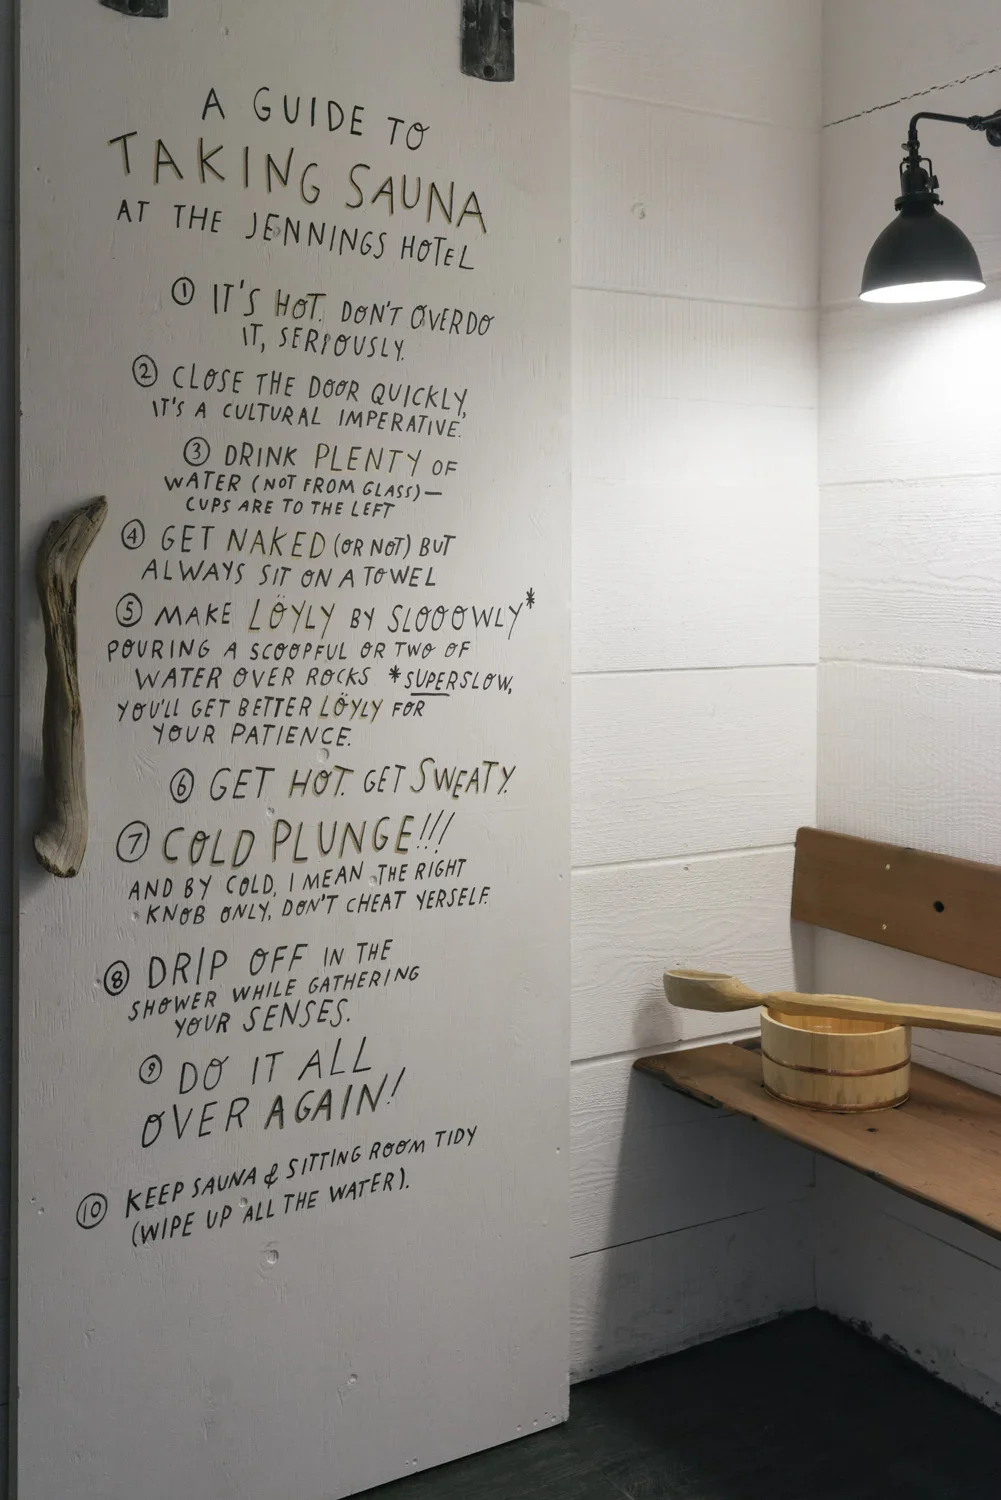 A GUIDE TO
TAKING SAUNA
AT THE JENNINGS HOTEL
① IT'S HOT. DON'T OVERDO
IT, SERIOUSLY.
② CLOSE THE DOOR QUICKLY,
IT'S A CULTURAL IMPERATIVE.
③ DRINK PLENTY OF
WATER (NOT FROM GLASS)—
CUPS ARE TO THE LEFT
④ GET NAKED (OR NOT) BUT
ALWAYS SIT ON A TOWEL
⑤ MAKE LÖYLY BY SLOOOWLY*
POURING A SCOOPFUL OR TWO OF
WATER OVER ROCKS *SUPERSLOW,
YOU'LL GET BETTER LÖYLY FOR
YOUR PATIENCE.
⑥ GET HOT. GET SWEATY.
⑦ COLD PLUNGE!!!
AND BY COLD, I MEAN THE RIGHT
KNOB ONLY, DON'T CHEAT YERSELF.
⑧ DRIP OFF IN THE
SHOWER WHILE GATHERING
YOUR SENSES.
⑨ DO IT ALL
OVER AGAIN!
⑩ KEEP SAUNA & SITTING ROOM TIDY
(WIPE UP ALL THE WATER).